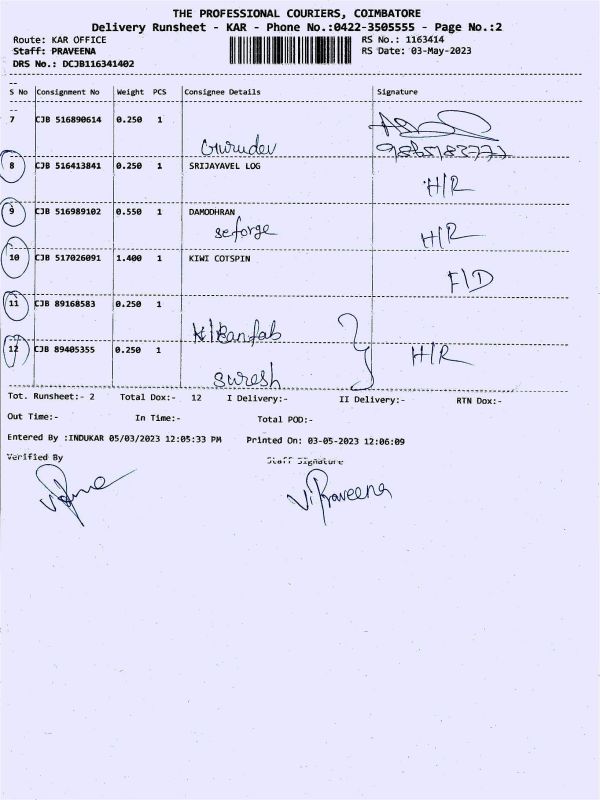 THE PROFESSIONAL COURIERS, COIMBATORE
Delivery Runsheet - KAR - Phone No.:0422-3505555 - Page No.:2
Route: KAR OFFICE RS No.: 1163414
Staff: PRAVEENA RS Date: 03-May-2023
DRS No.: DCJB116341402
S No Consignment No Weight PCS Consignee Details Signature
7 CJB 516890614 0.250 1
Gurudev
8 CJB 516413841 0.250 1 SRIJAYAVEL LOG
H/R
9 CJB 516989102 0.550 1 DAMODHRAN
seforge H/R
10 CJB 517026091 1.400 1 KIWI COTSPIN
F/D
11 CJB 89168583 0.250 1
12 CJB 89405355 0.250 1 H/R
Suresh
Tot. Runsheet:- 2 Total Dox:- 12 I Delivery:- II Delivery:- RTN Dox:-
Out Time:- In Time:- Total POD:-
Entered By :INDUKAR 05/03/2023 12:05:33 PM Printed On: 03-05-2023 12:06:09
Verified By Staff Signature
V.Praveena